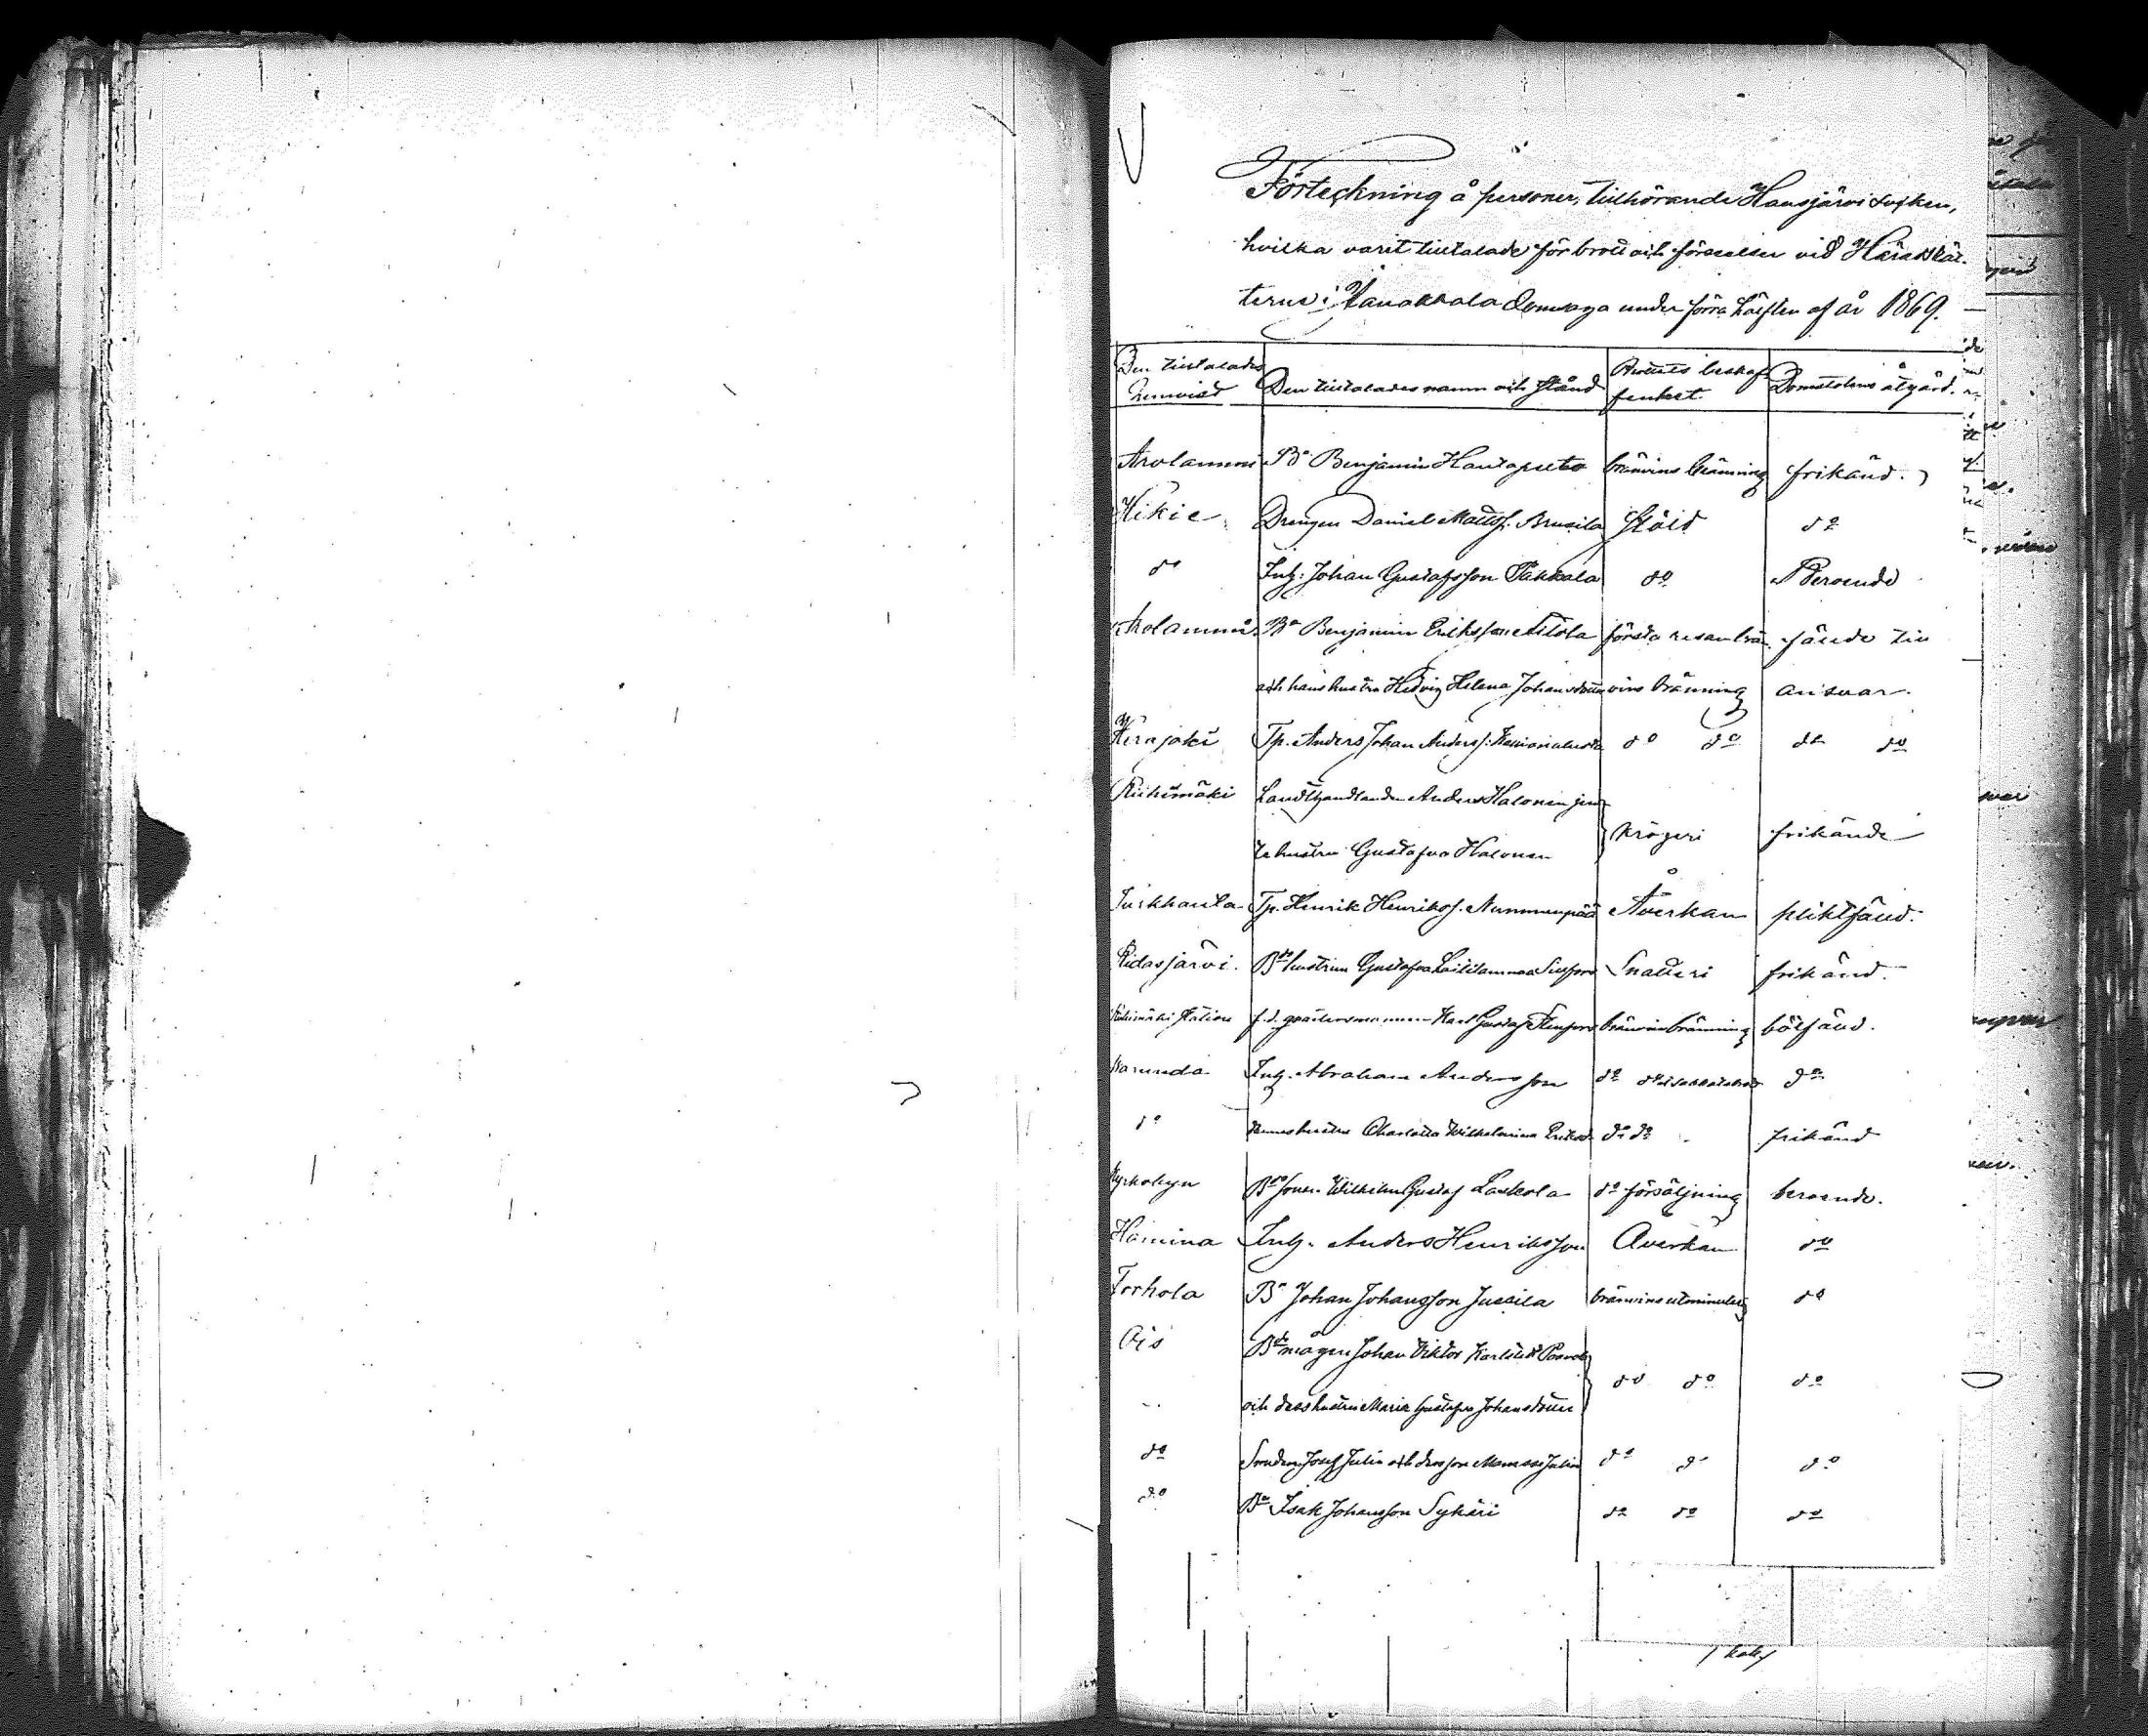 Förteckning å personer, tillhörande Hausjärvi socken,
hvilka varit tilltalade för brott och förseelser vid Häradsrät-
terne i Janakkala Domsaga under förra hälften af år 1869.
Den tilltalades hemvist Den tilltalades namn och stånd Brottets beskaf- fenhet. Domstolens åtgärd.
Arolammi Bn Benjamin Hautapelto bränvins bränning frikänd.
Hikie Drengen Daniel Mattss. Brusila Stöld do
do Inh: Johan Gustafsson Pakkala do Beroende
Arolammi Bn Benjamin Eriksson Alitola första resan brän- fälde till
och hans hustru Hedvig Helena Johansdotter vins bränning ansvar.
Herajoki Tp. Anders Johan Anderss. do do do do
Riihimäki Landthandlanden Anders Halonen jem-
te hustru Gustafva Halonen krögeri frikände
Turkhauta Tp. Henrik Henrikss. Nummenpää Åverkan pliktfäld.
Ridasjärvi. Bde hustrun Gustafva Snatteri frikänd.
Riihimäki Station f.d. Karl Gustaf bränvinsbränning bötfäld.
Karunda Inh. Abraham Andersson do do do
do hustru Charlotta Wilhelmina Eriksd. do do frikänd
Kyrkobyn Bde sonen Wilhelm Gustaf Laukola do försäljning beroende.
Hamina Inh. Anders Henriksson Åverkan do
Torhola Bn Johan Johansson Jussila bränvins utminutering do
Ois Bde mågen Johan Viktor Karlsted
och dess hustru Maria Gustafva Johansdotter do do do
do Josef Julin och dess son Julin do do do
do Bn Isak Johansson Sykäri do do do